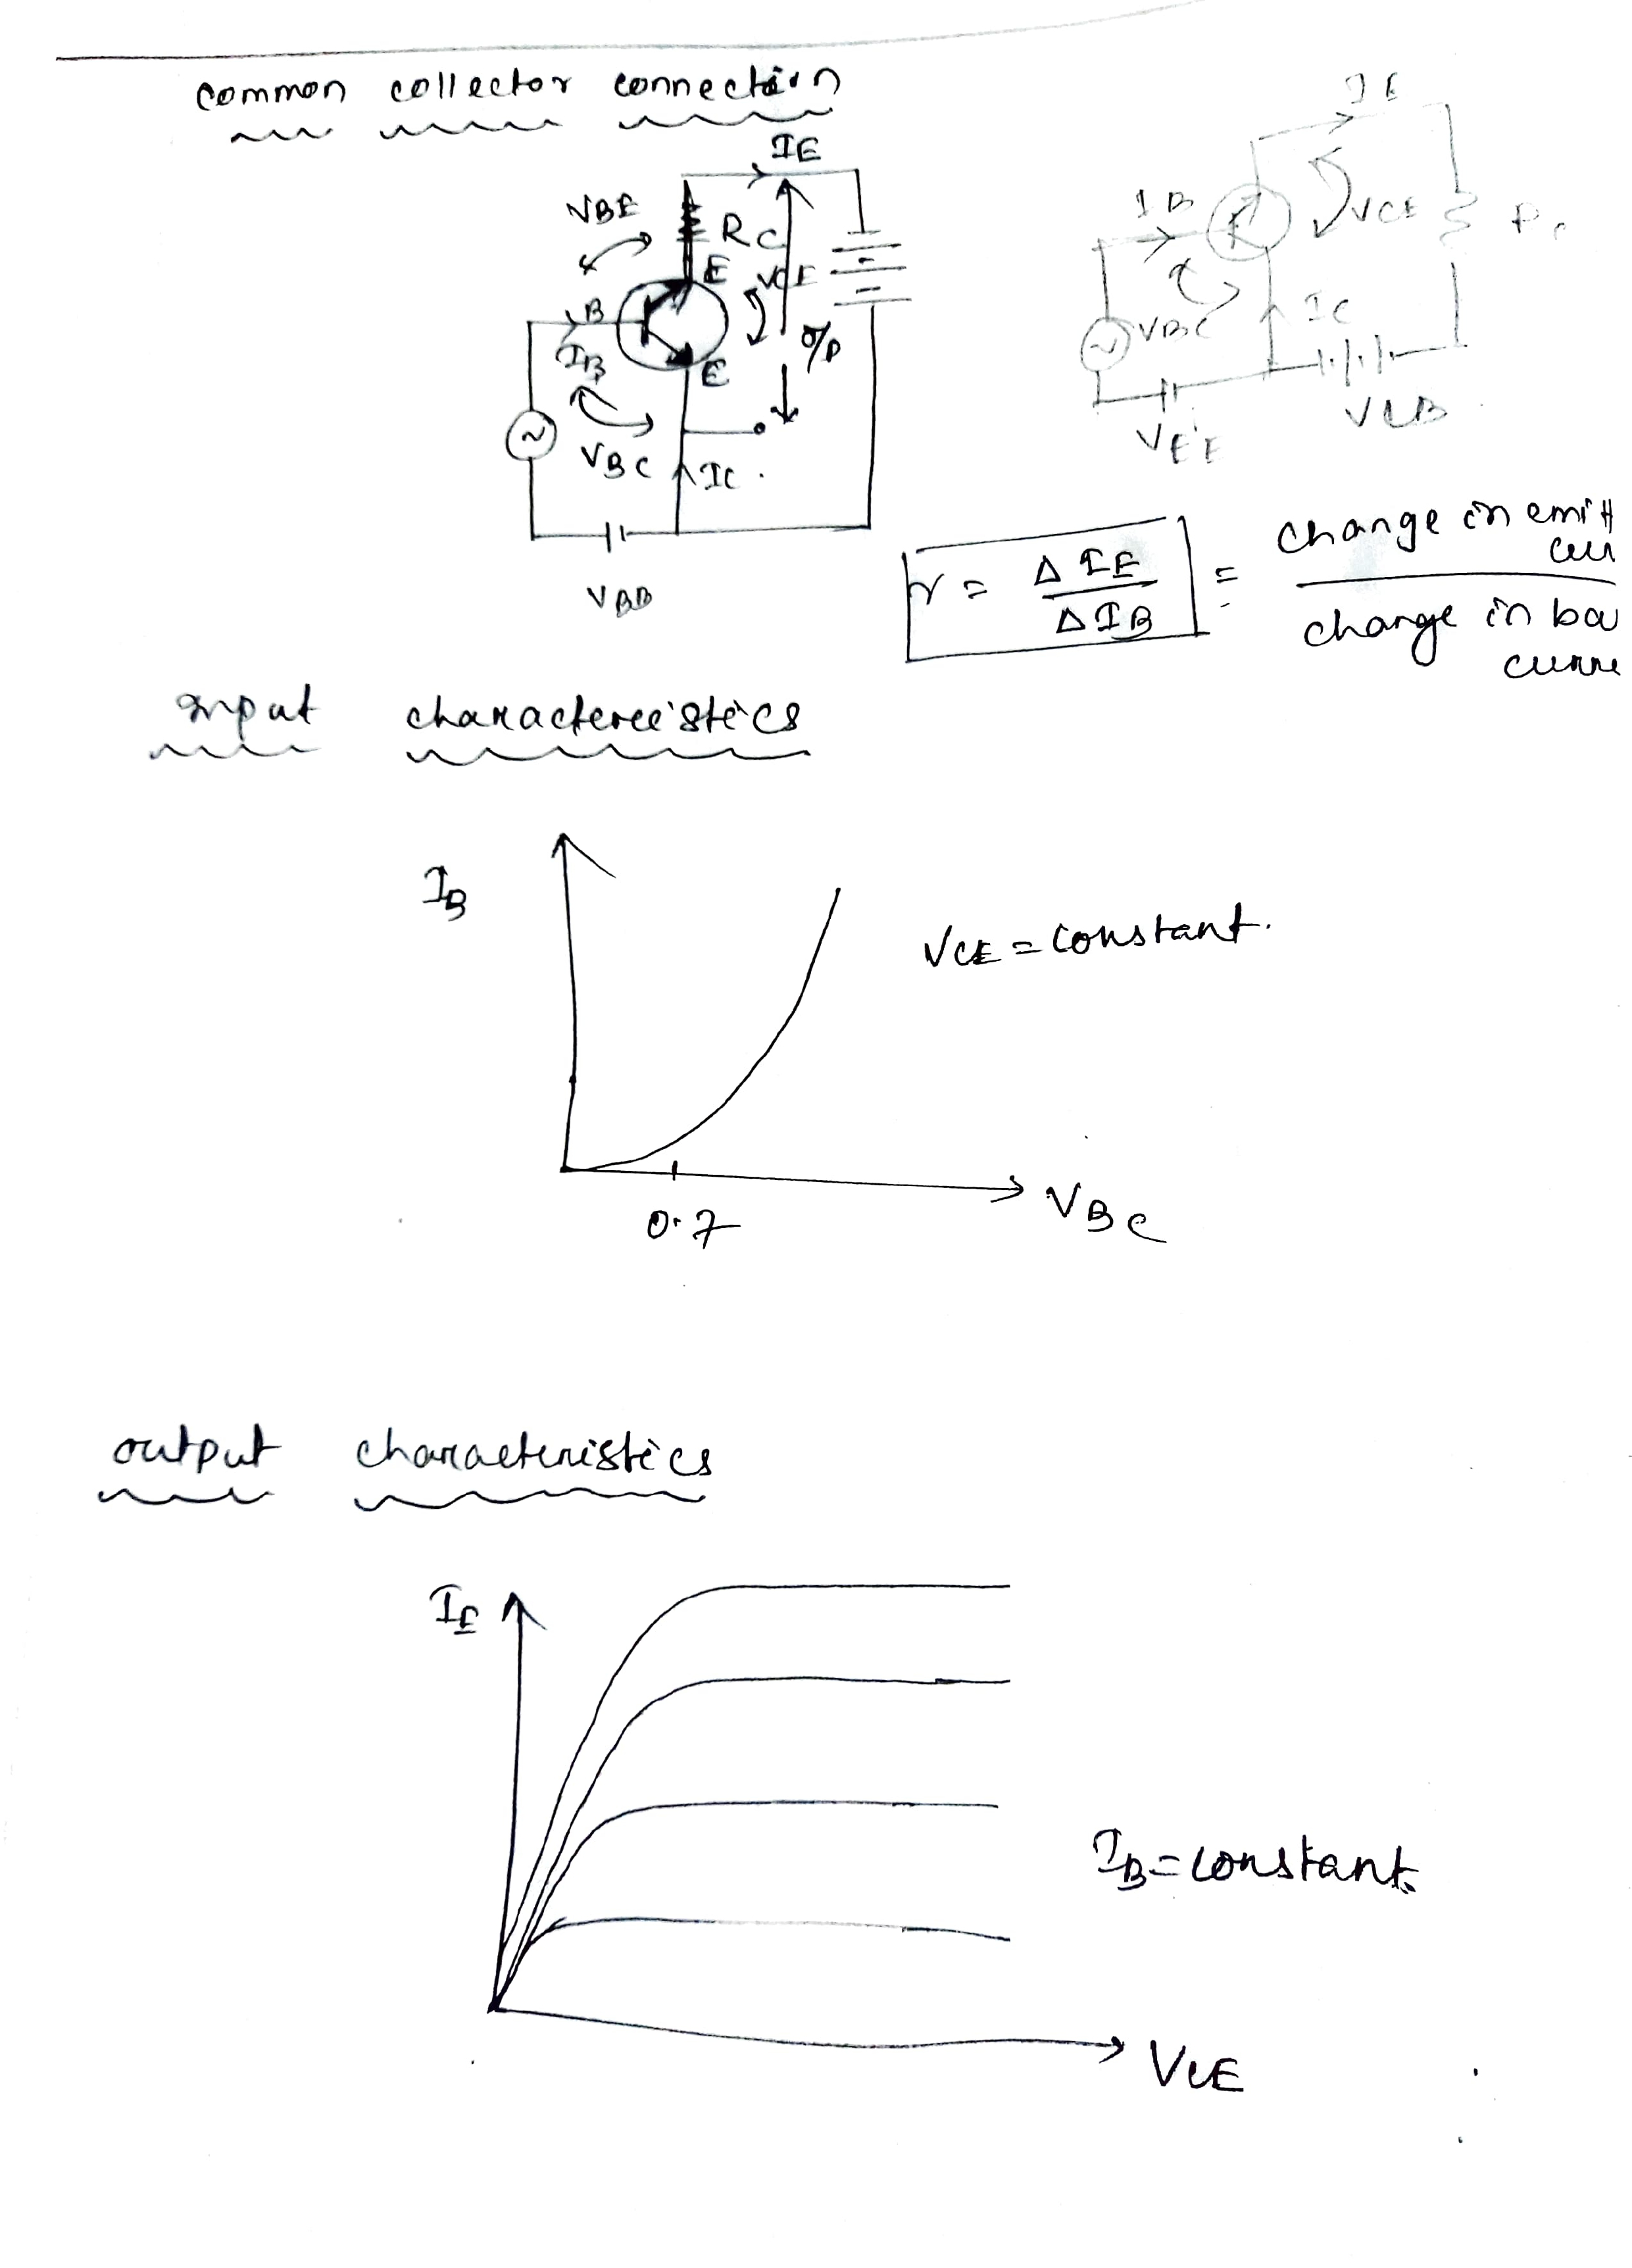 common collector connection
IE
VBE
RC
E
VCE
B
IB
O/P
E
VBC
IC
VBB
IE
IB
VCE
VBC
IC
VEE
VCB
γ = ΔIE / ΔIB = change in emitt
change in ba
curre
input characteristics
IB
VCE = constant.
0.7
VBC
output characteristics
IE
IB = constant.
VCE